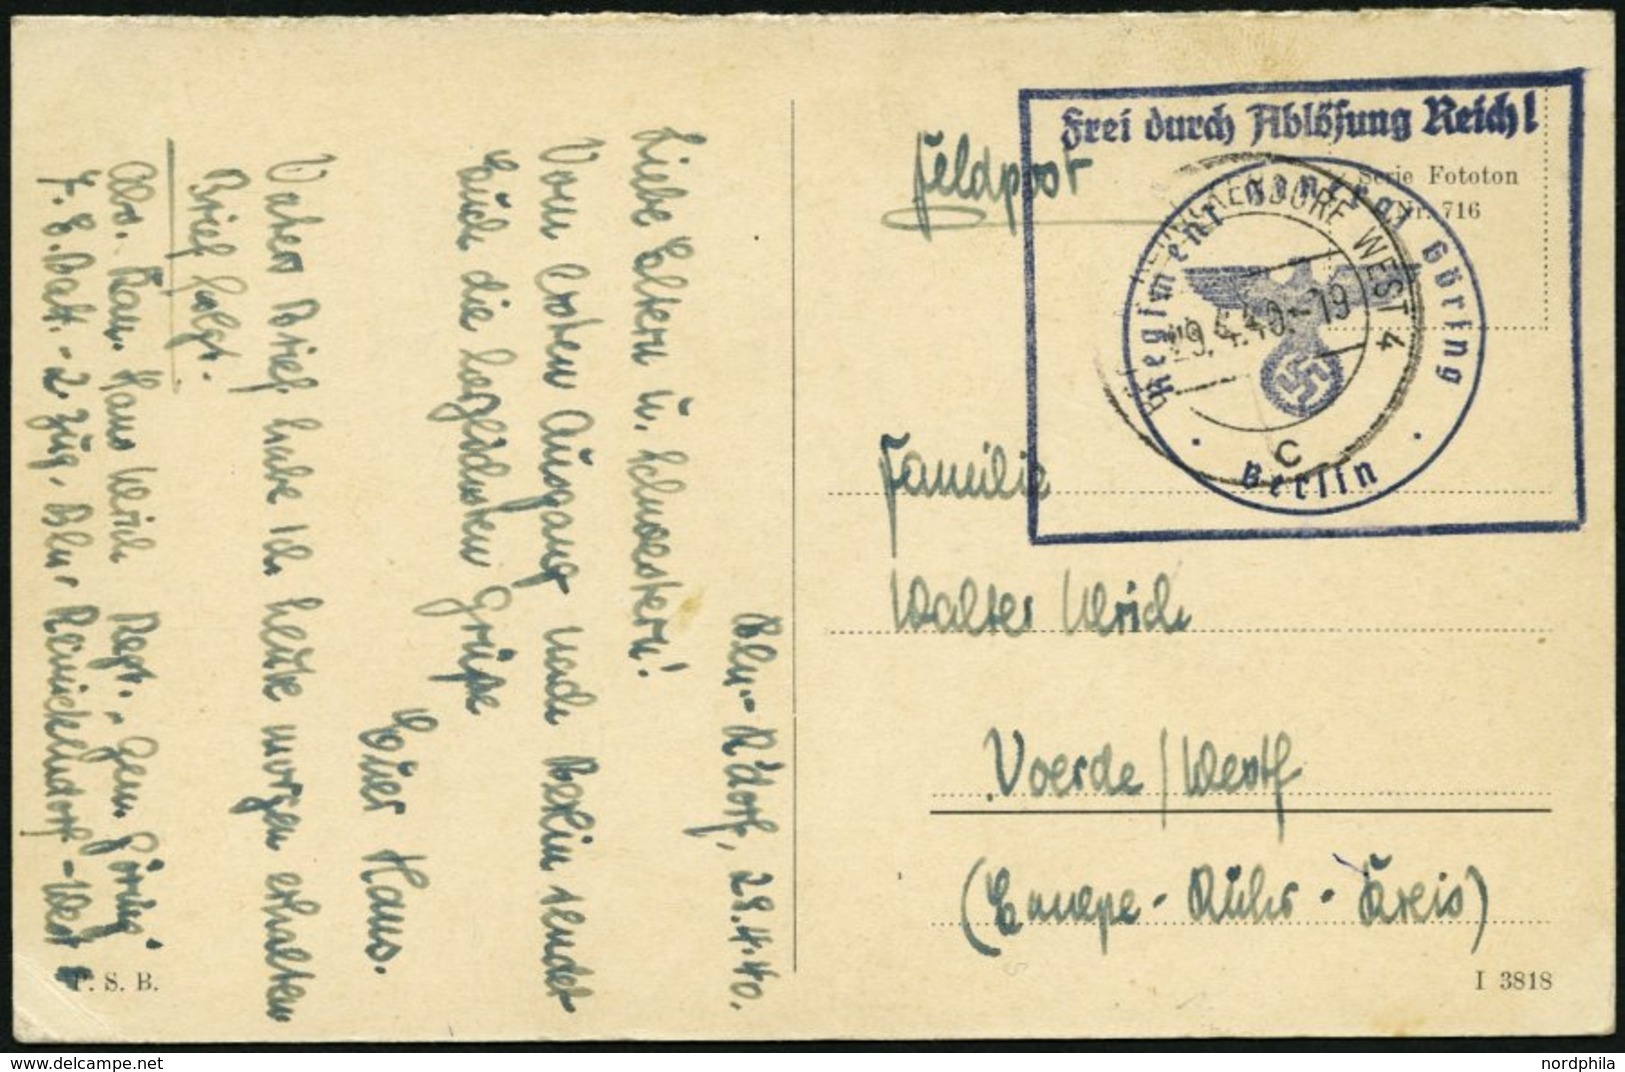 Bln.-R'dorf, 28.4.40.
Liebe Eltern u. Schwestern!
Vom ersten Ausgang nach Berlin sendet
Euch die herzlichsten Grüße
Euer Hans.
Vaters Brief habe ich heute morgen erhalten
Brief folgt.
Abs. Kan. Hans Ulrich Regt. „Gen. Göring"
7. E.Batt. - 2. Zug. Bln. Reinickendorf-West
P. S. B.
Feldpost
Frei durch Ablösung Reich!
Serie Fototon
Nr. 716
Regiment General Göring
Berlin
REINICKENDORF WEST 4
29.4.40.-19
c
Familie
Walter Ulrich
Voerde / Westf
(Ennepe-Ruhr-Kreis)
I 3818
nordphila